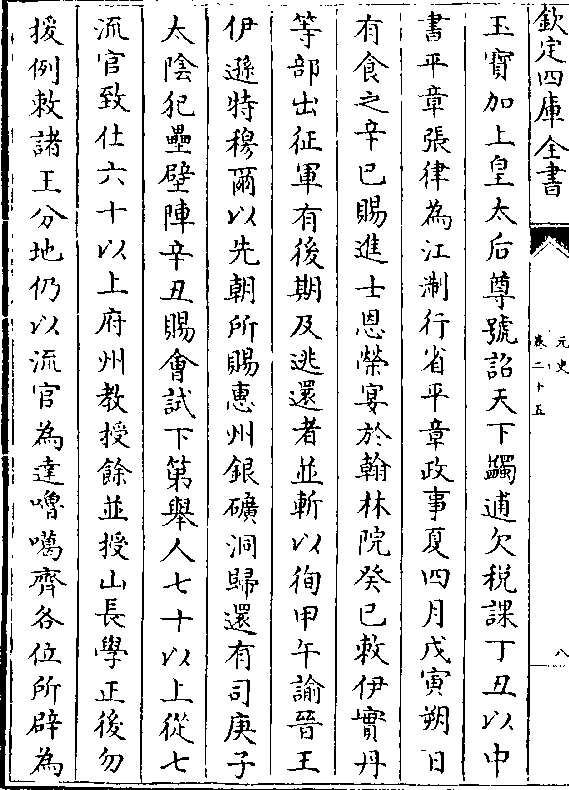 欽定四庫全書
元史
卷二十五
八
玉寶加上皇太后尊號詔天下蠲逋欠税課丁丑以中
書平章張律為江淛行省平章政事夏四月戊寅朔日
有食之辛巳賜進士恩榮宴於翰林院癸巳敕伊實丹
等部出征軍有後期及逃還者並斬以徇甲午諭晉王
伊遜特穆爾以先朝所賜惠州銀礦洞歸還有司庚子
太陰犯壘壁陣辛丑賜會試下第舉人七十以上從七
流官致仕六十以上府州教授餘並授山長學正後勿
援例敕諸王分地仍以流官為達嚕噶齊各位所辟為